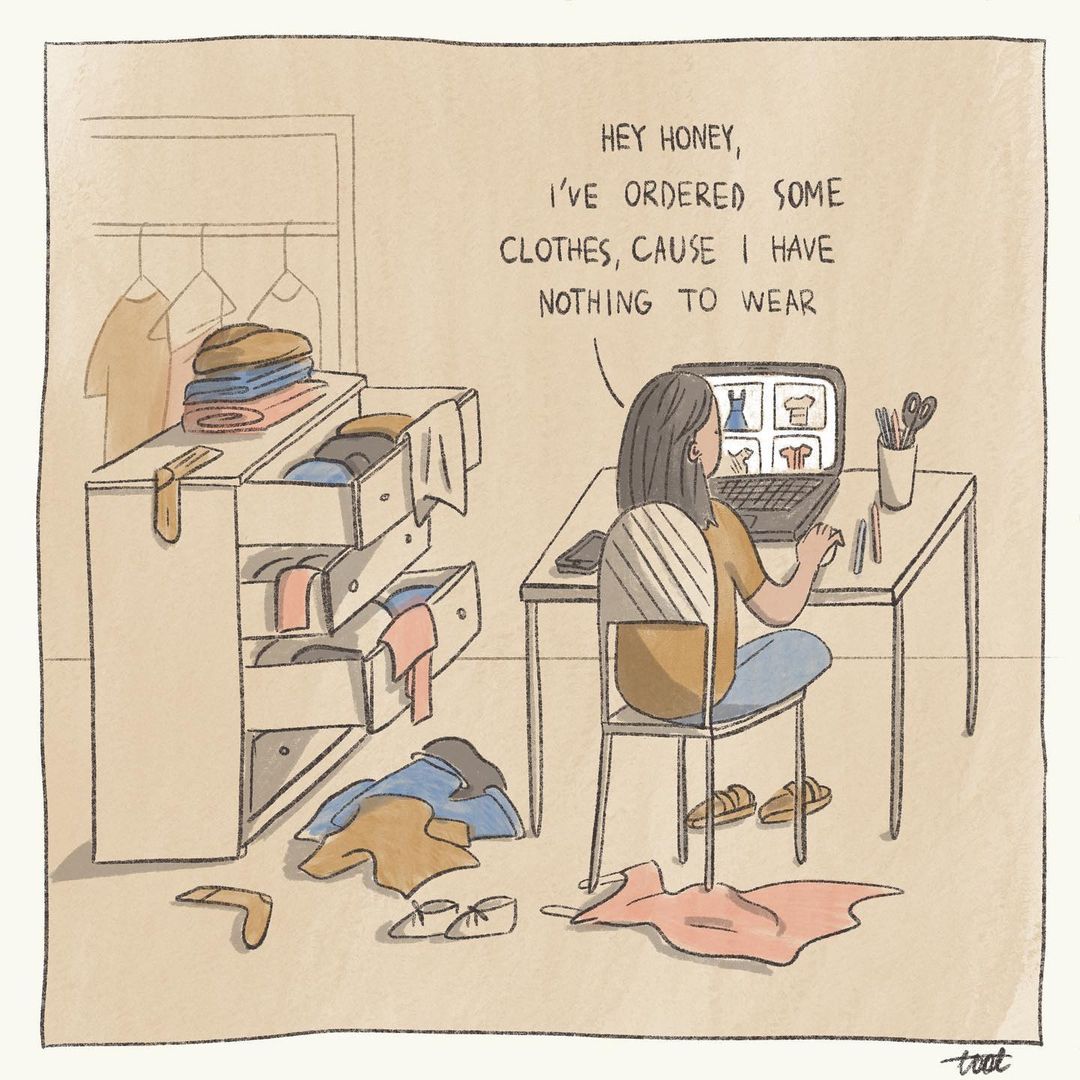 HEY HONEY,
I'VE ORDERED SOME
CLOTHES, CAUSE I HAVE
NOTHING TO WEAR